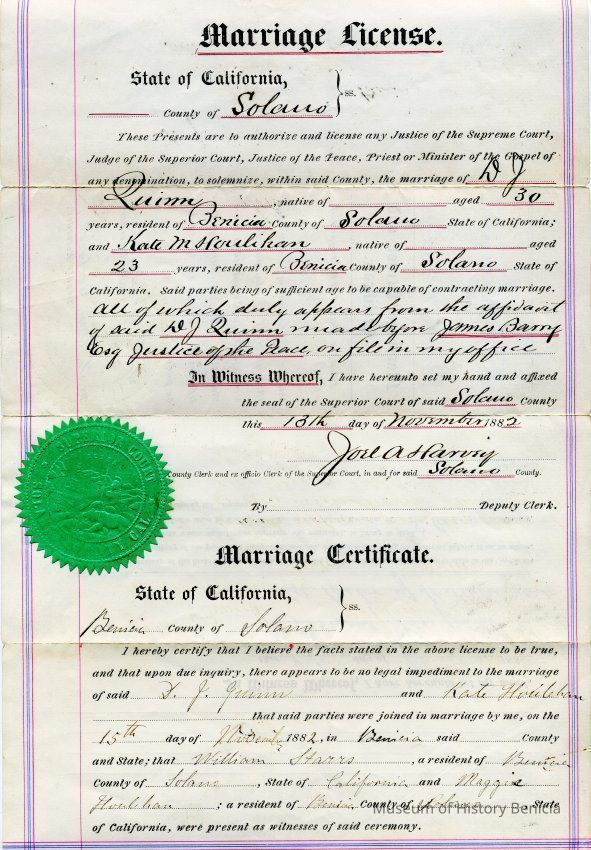 Marriage License.
State of California,
County of Solano } ss.
These Presents are to authorize and license any Justice of the Supreme Court,
Judge of the Superior Court, Justice of the Peace, Priest or Minister of the Gospel of
any denomination, to solemnize, within said County, the marriage of D J
Quinn, native of aged 30
years, resident of Benicia County of Solano State of California;
and Kate M Houlihan, native of aged
23 years, resident of Benicia County of Solano State of
California. Said parties being of sufficient age to be capable of contracting marriage.
all of which duly appears from the affidavit
of said D J Quinn made before James Barry
Esq Justice of the Peace, on file in my office
In Witness Whereof, I have hereunto set my hand and affixed
the seal of the Superior Court of said Solano County
this 13th day of November 1882
Joel A Harvey
County Clerk and ex officio Clerk of the Superior Court, in and for said Solano County.
By Deputy Clerk.
Marriage Certificate.
State of California,
Benicia County of Solano } ss.
I hereby certify that I believe the facts stated in the above license to be true,
and that upon due inquiry, there appears to be no legal impediment to the marriage
of said D. J. Quinn and Kate Houlihan
that said parties were joined in marriage by me, on the
15th day of 1882, in Benicia said County
and State; that William Starrs, a resident of Benicia
County of Solano, State of California and Maggie
Houlihan; a resident of Benicia County of Solano, State
of California, were present as witnesses of said ceremony.
Museum of History Benicia